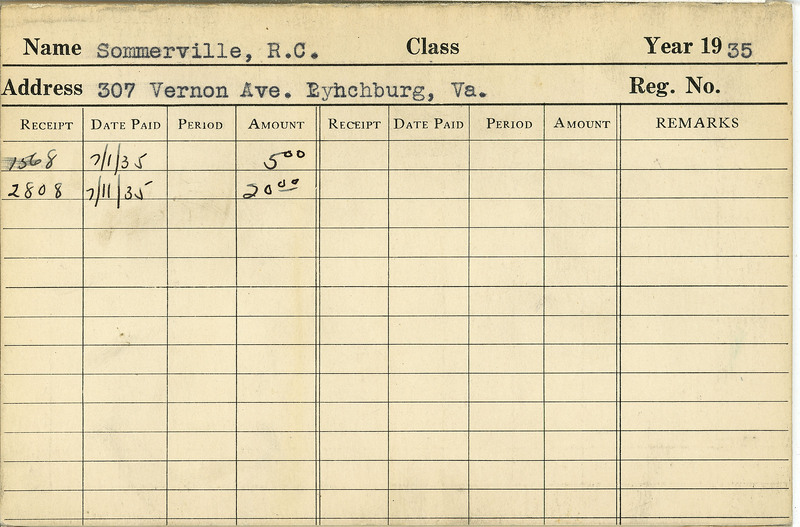 Name Sommerville, R.C. Class Year 1935
Address 307 Vernon Ave. Lynchburg, Va. Reg. No.
RECEIPT DATE PAID PERIOD AMOUNT RECEIPT DATE PAID PERIOD AMOUNT REMARKS
1568 7/1/35 5 00
2808 7/11/35 20 00